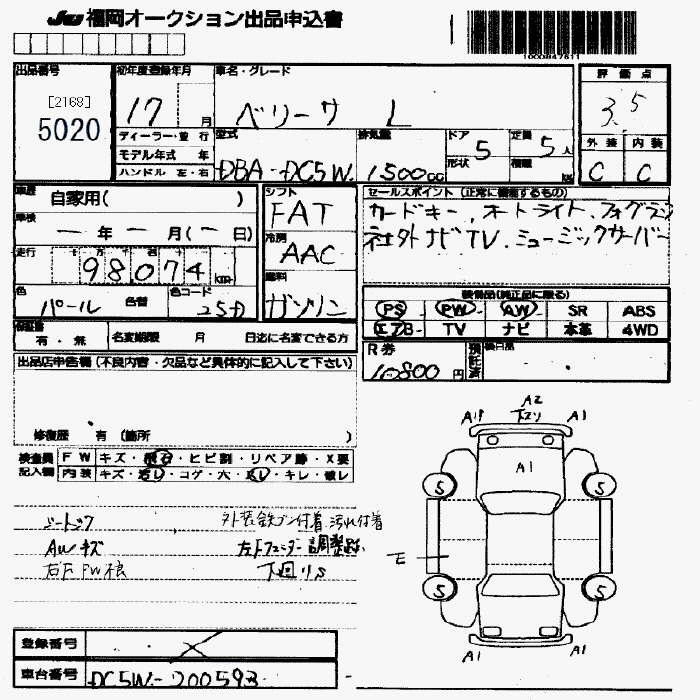 JU 福岡オークション出品申込書
1000847811
出品番号 初年度登録年月 車名・グレード 評価点
[2168]
5020
17 月 ベリーサ L 3.5
ディーラー・並行 型式 排気量 ドア 5 定員 5人 外装 内装
モデル年式 年 形状 積載 kg
ハンドル 左・右 DBA-DC5W 1500cc C C
車歴 自家用( ) シフト FAT セールスポイント (正常に機能するもの)
カードキー、オートライト、フォグランプ
車検 ー年ー月(ー日) 冷房 AAC 社外ナビTV、ミュージックサーバー
走行 十万千百十
98074km 燃料 ガソリン
色 パール 色替 色コード 25D
装備品(純正品に限る)
PS PW AW SR ABS
エアB TV ナビ 本革 4WD
保証書 有・無 名変期限 月 日迄に名変できる方
R券 10800円 預託済 欠品
出品店申告欄 (不良内容・欠品など具体的に記入して下さい)
修復歴 有 (箇所 )
検査員 FW キズ・飛石・ヒビ割・リペア跡・X要
記入欄 内装 キズ・汚れ・コゲ・穴・スレ・キレ・破レ
A2
A1 下スリ A1
A1
S S
E
S S
A1 A1
シートスレ 外装鉄プン付着 汚れ付着
AWキズ 左Fフェンダー調整跡
右F FW痕 下廻りS
登録番号 ×
車台番号 DC5W-200593